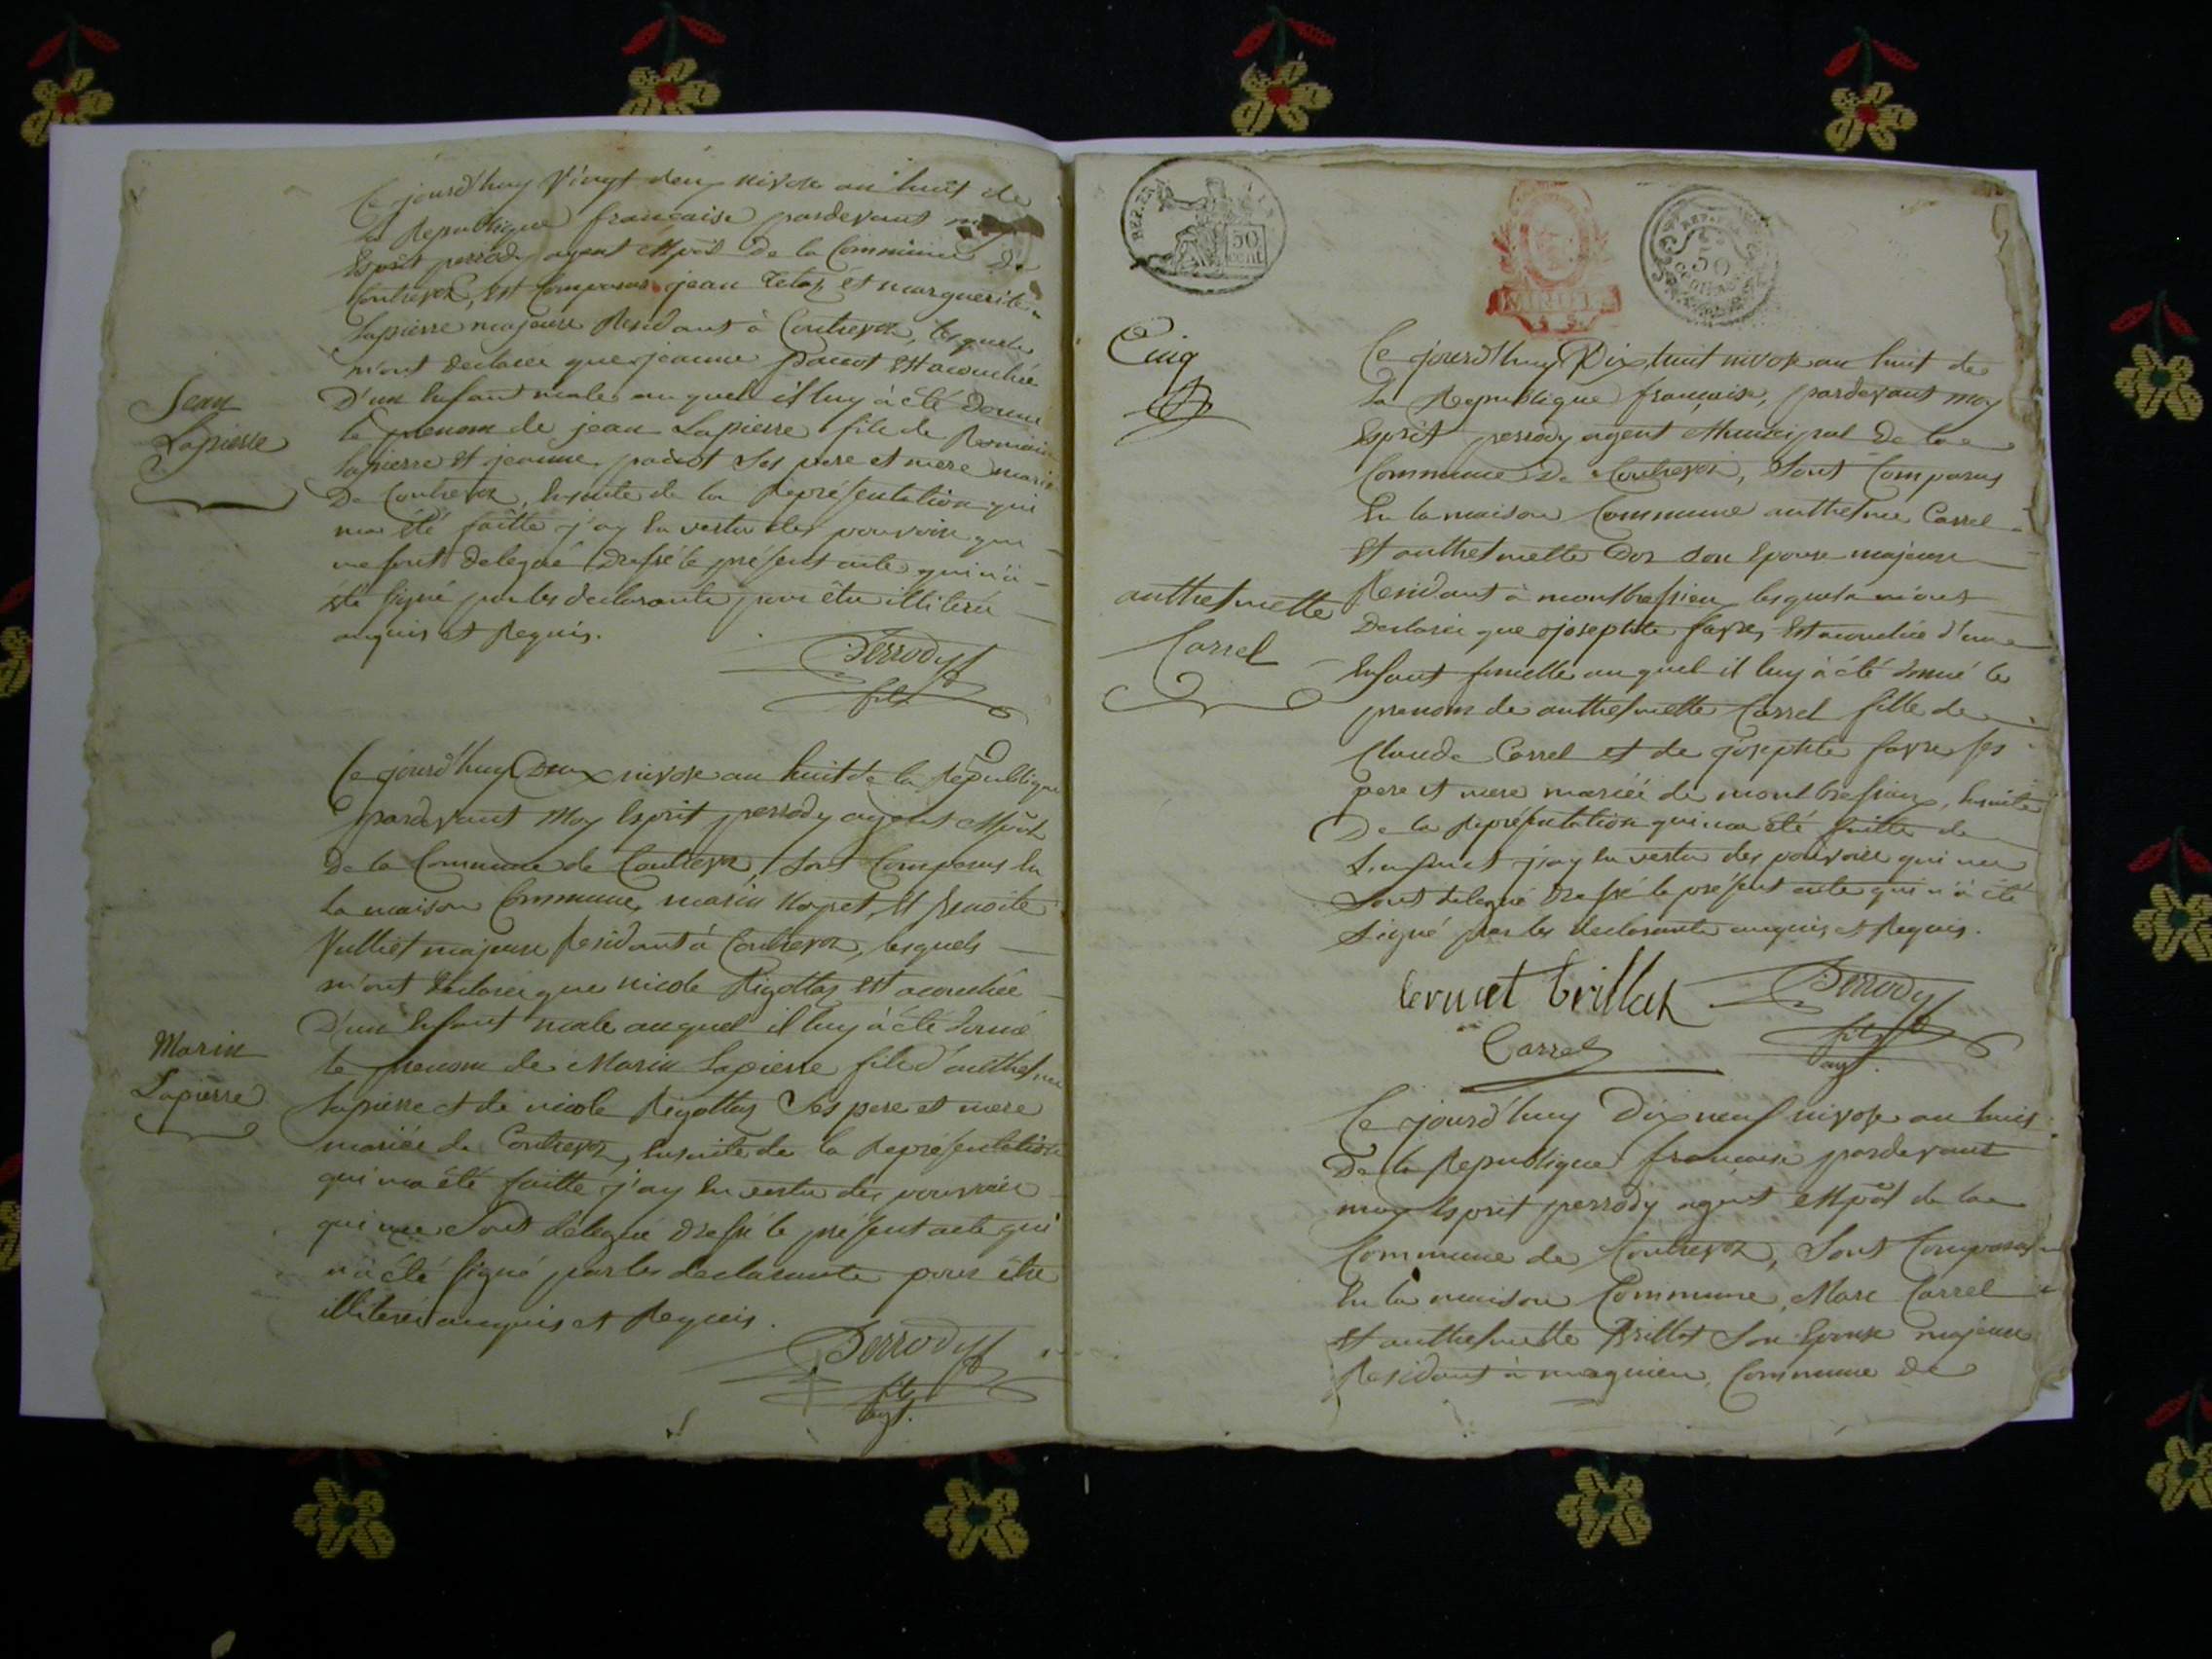 Ce jourd'huy Vingt deux nivose an huit de
la Republique francaise pardevant moy
Esprit perrody agent Mpal de la Commune de
Contrevoz, est Comparus jean Tetaz et marguerite
Lapierre majeure Residant à Contrevoz, lesquels
m'ont declaré que jeanne pacot est acouchée
D'un Enfant male auquel il luy à été Donné
Jean
Lapierre
le prenom de jean Lapierre fils de Romain
Lapierre et jeanne pacot ses pere et mere mariés
De Contrevoz, Ensuite de la Représentation qui
ma été faitte j'ay En vertu des pouvoirs qui
me sont delegué Dressé le présent acte qui n'à
été signé par les declarants pour être illiteré
enquis et Requis.
Perrody
fils
Ce jourd'huy Deux nivose an huit de la République
pardevant Moy Esprit perrody agent Mpal
De la Commune de Contrevoz, sont Comparus En
la maison Commune, marin et benoite
Vulliet majeure Residant à Contrevoz, lesquels
m'ont declaré que nicole Rigottaz est acouchée
D'un Enfant male auquel il luy à été donné
Marin
Lapierre
le prenom de Marin Lapierre fils d'anthelme
Lapierre et de nicole Rigottaz Ses pere et mere
mariée de Contrevoz, Ensuite de la Représentation
qui ma été faitte j'ay En vertu des pouvoirs
qui me sont délegué Dressé le présent acte qui
n'à été signé par les declarants pour être
illiteré enquis et Requis.
Perrody
fils
agt.
REP. FRA
50
cent
MINUTE
REP.
50
Cinq
Ce jourd'huy Dix huit nivose an huit de
la Republique française, pardevant moy
Esprit perrody agent Municipal De la
Commune De Contrevoz, Sont Comparus
En la maison Commune anthelme Carrel
Et anthelmette Son Epouse majeure
anthelmette
Carrel
Residant à montbressieu lesquels m'ont
Declaré que josephte favre Est acouchée d'une
Enfant femelle auquel il luy à été donné le
prenom de anthelmette Carrel fille de
Claude Carrel et de josephte favre ses
pere et mere mariée de montbressieu, Ensuite
De la Représentation qui ma été faitte de
L'enfant j'ay En vertu des pouvoirs qui me
Sont delegué Dressé le présent acte qui n'à été
Signé par les declarants enquis et Requis.
Perrody
Carrel
fils
agt.
Ce jourd'huy Dix neuf nivose an huit
De la Republique francaise pardevant
moy Esprit perrody agent Mpal de la
Commune de Contrevoz, Sont Comparus
En la maison Commune, Marc Carrel
Et anthelmette Brillat Son Epouse majeure
Residant à magnieu, Commune De